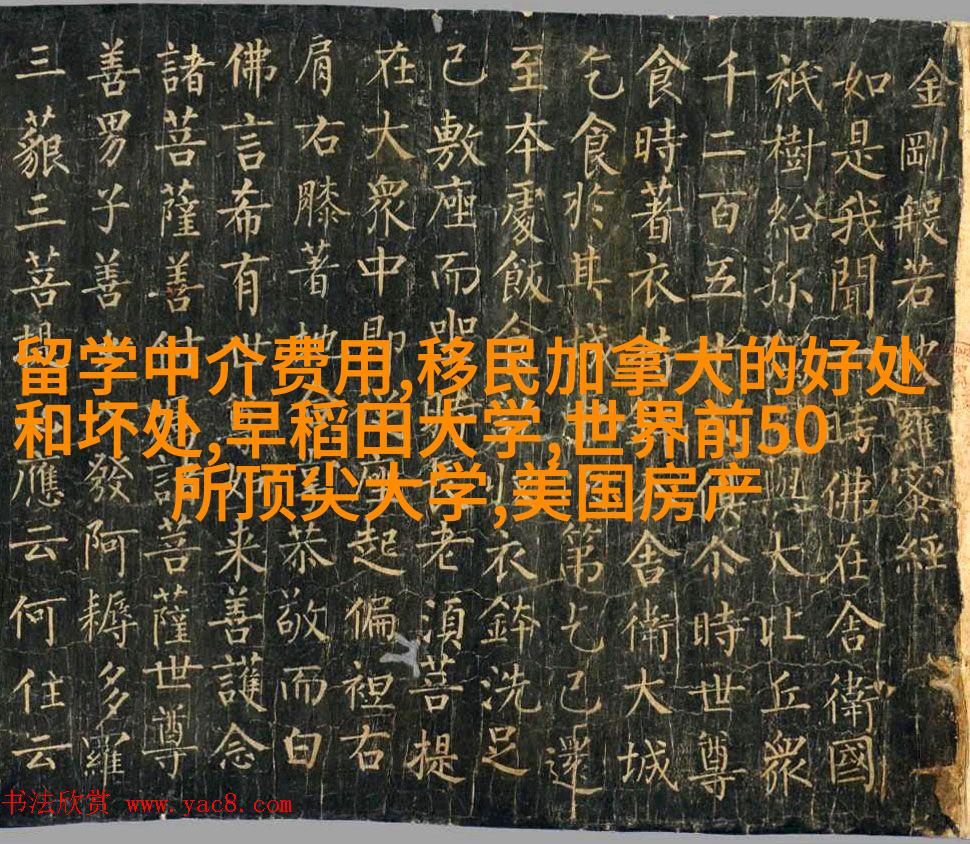 金剛般若羅蜜經
如是我聞一時佛在舍衛國
祇樹給孫與大比丘眾
千二百五尒時世尊
食時著衣舍衛大城
乞食於其城第乞已還
至本處飯食衣鉢洗足
已敷座而老須菩提
在大眾中即起偏袒右
肩右膝著恭敬而白
佛言希有世来善護念
諸菩薩善付菩薩世尊
善男子善發阿耨多羅
三藐三菩提應云何住云
留学中介费用,移民加拿大的好处
和坏处,早稻田大学,世界前50
所顶尖大学,美国房产
书法欣赏 www.yac8.com